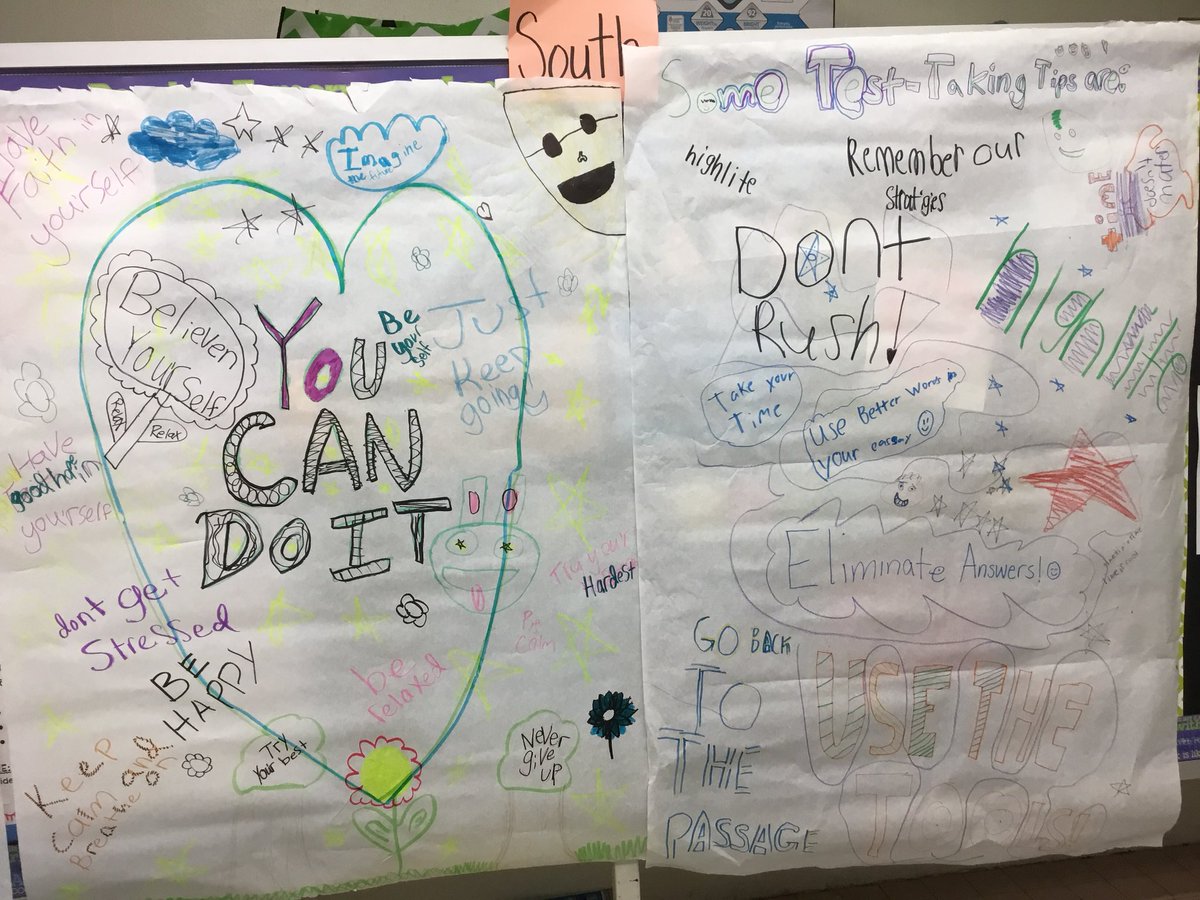 South
Have
Faith in
yourself
Imagine
the future
Believen
YOURSelf
Relax
Relax
YOU
CAN
DO IT
Be
your
self
Just
Keep
going
Have
good hope in
yourself
dont get
Stressed
BE
HAPPY
be
relaxed
Try your
Hardest
Calm
Keep
calm and
Breathe on
Try
Your best
Never
give
up
Some Test-Taking Tips are:
highlite
Remember our
stratigies
DONT
Rush!
time
highlight
Take your
Time
Use Better words in
your eassay
Eliminate Answers!
GO BACK
TO
THE
PASSAGE
USE THE
TOOLS!